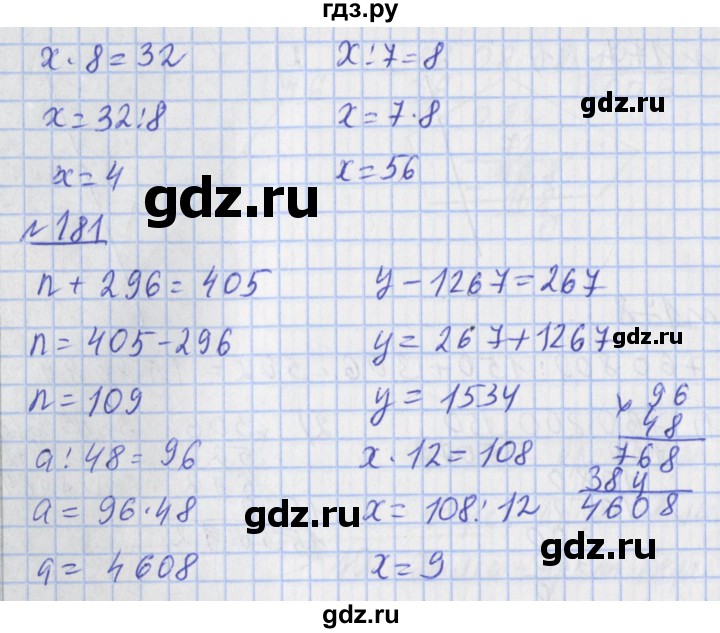 гдз.ру
x · 8 = 32
x = 32 : 8
x = 4
x : 7 = 8
x = 7 · 8
x = 56
gdz.ru
gdz.ru
№ 181
n + 296 = 405
n = 405 - 296
n = 109
y - 1267 = 267
y = 267 + 1267
y = 1534
gdz.ru
a : 48 = 96
a = 96 · 48
a = 4608
x · 12 = 108
x = 108 : 12
x = 9
× 96
48
768
384
4608
gdz.ru
gdz.ru
gdz.ru